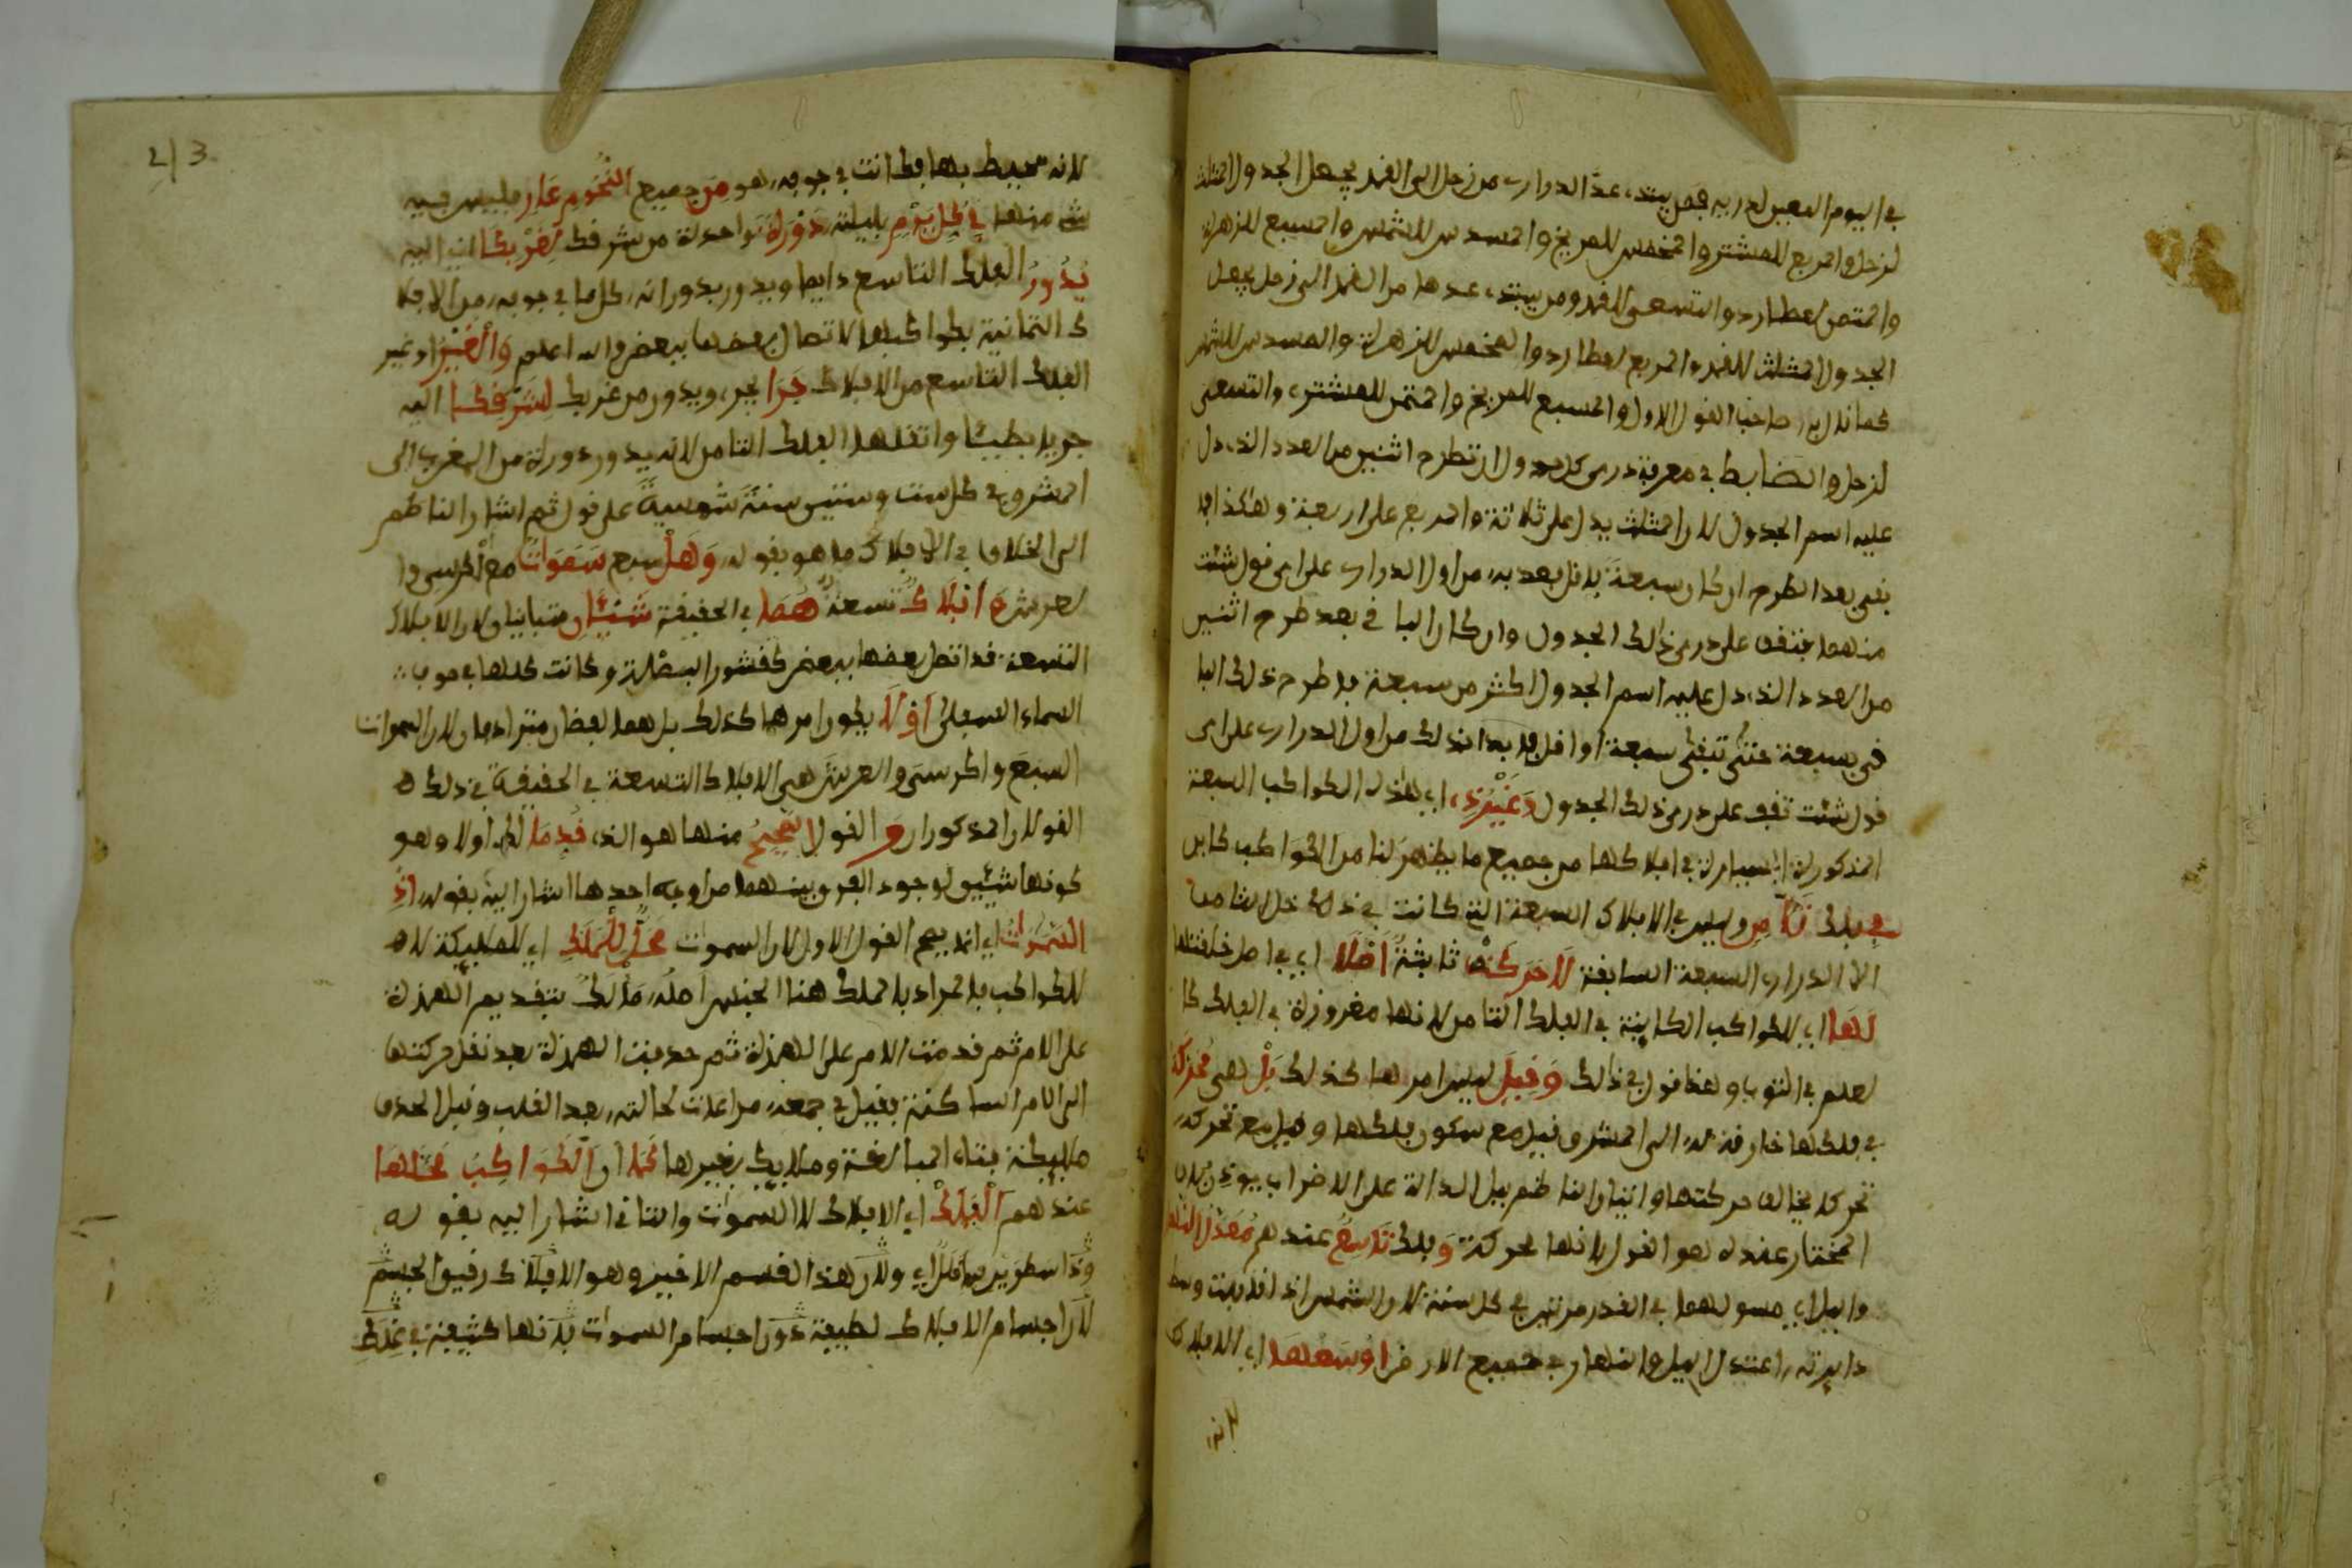 في اليوم المعين لدريه فمن بيته عد الدراري من زحل الى القمر يجعل الجدول المثلث
لزحل والمربع للمشتري والمخمس للمريخ والمسدس للشمس والمسبع للزهرة
والمثمن لعطارد والتسعي للقمر ومن بيته عدها من القمر الى زحل يجعل
الجدول المثلث للقمر والمربع لعطارد والمخمس للزهرة والمسدس للشمس
كما قال به صاحب القول الاول والمسبع للمريخ والمثمن للمشتري والتسعي
لزحل والضابط في معرفة دري كل جدول ان تطرح اثنين من العدد الذي دل
عليه اسم الجدول لان المثلث يدل على ثلاثة والمربع على اربعة وهكذا فما
بقي بعد الطرح ان كان سبعة فاقل بعد به من اول الدراري على اي قول شئت
منهما فتقف على دري ذلك الجدول وان كان البا في بعد طرح اثنين
من العدد الذي دل عليه اسم الجدول اكثر من سبعة فاطرح ذلك البا
في سبعة حتى تبقى سبعة او اقل فابدا بذلك من اول الدراري على اي
قول شئت تقف على دري ذلك الجدول وغير ذي اي هذه الكواكب السبعة
المذكورة السيارة في افلاكها من جميع ما يظهر لنا من الكواكب كاين
في فلك ثامن وليس في الافلاك السبعة التي كانت في
الا الدراري السبعة السابقة لا حركة ثابتة اصلا اي في اصل خلقتها
لها اي للكواكب الكاينة في الفلك الثامن لانها مغروزة في الفلك كا
لعلم في الثوب وهذا قول في ذلك وقيل ليس امرها كذلك بل هي محركة
في فلكها خارقة له الى المشرق قيل مع سكون فلكها وقيل مع تحركه
تحركه يخالف حركتها واتيان الناظم ببل الدالة على الاضراب يوذن بان
المختار عنده هو القول لانها محركة وفلك تاسع عندهم معدل النها
والليل اي مسو لهما في القدر مرتين في كل سنة لان الشمس اذا قابلت وسط
دايرته اعتدل الليل والنهار في جميع الارض اوسعها اي الافلاك
لانه
2/3
لانه محيط بها فكانت في جوفه وهو من جميع النجوم عار فليس فيه
شي منها في كل يوم بليلته دورة واحدة من شرقك لغربك اي اليه
يدور الفلك التاسع دايما ويدور بدورانه كل ما في جوفه من الافلا
ك الثمانية بكواكبها لاتصال بعضها ببعض والله اعلم والغير او غير
الفلك التاسع من الافلاك جرا يجر ويدور من غربك لشرقك اليه
جريا بطيئا واثقلها الفلك الثامن لانه يدور دورة من المغرب الى
المشرق في كل ست وستين سنة شمسية على قول ثم اشار الناظم
الى الخلاف في الافلاك ما هو بقوله وهل سبع سموات مع الكرسي وا
لعرش افلاك تسعة هما في الحقيقة شيئان متباينان لان الافلاك
التسعة قد اتصل بعضها ببعض كقشور البصلة وكانت كلها في جوف
السماء السفلى او لا يكون امرها كذلك بل هما لفظان مترادفان لان السموات
السبع والكرسي والعرش هي الافلاك التسعة في الحقيقة في ذلك
القولان المذكوران والقول الصحيح منها هو الذي قدما لك اولا وهو
كونها شيئين لوجود الفرق بينهما من اوجه احدها اشار اليه بقوله اذ
السموات اي انه يصح القول الاول لان السموات محل للملك اي للمليكة لا
للكواكب فالمراد بالملك هنا الجنس اصله مألك بتقديم الهمزة
على اللام ثم قدمت اللام على الهمزة ثم حذفت الهمزة بعد نقل حركتها
الى اللام الساكنة فقيل في جمعه مراعات لحالته بعد القلب وقبل الحذف
ملايكة بتاء المبالغة وملايك بغيرها كما ان الكواكب محلها
عندهم الفلك اي الافلاك لا السموات والثاني اشار اليه بقوله
ولان هذا القسم الاخير وهو الافلاك رقيق الجسم
لان اجسام الافلاك لطيفة دون اجسام السموات فانها كثيفة في غلظ